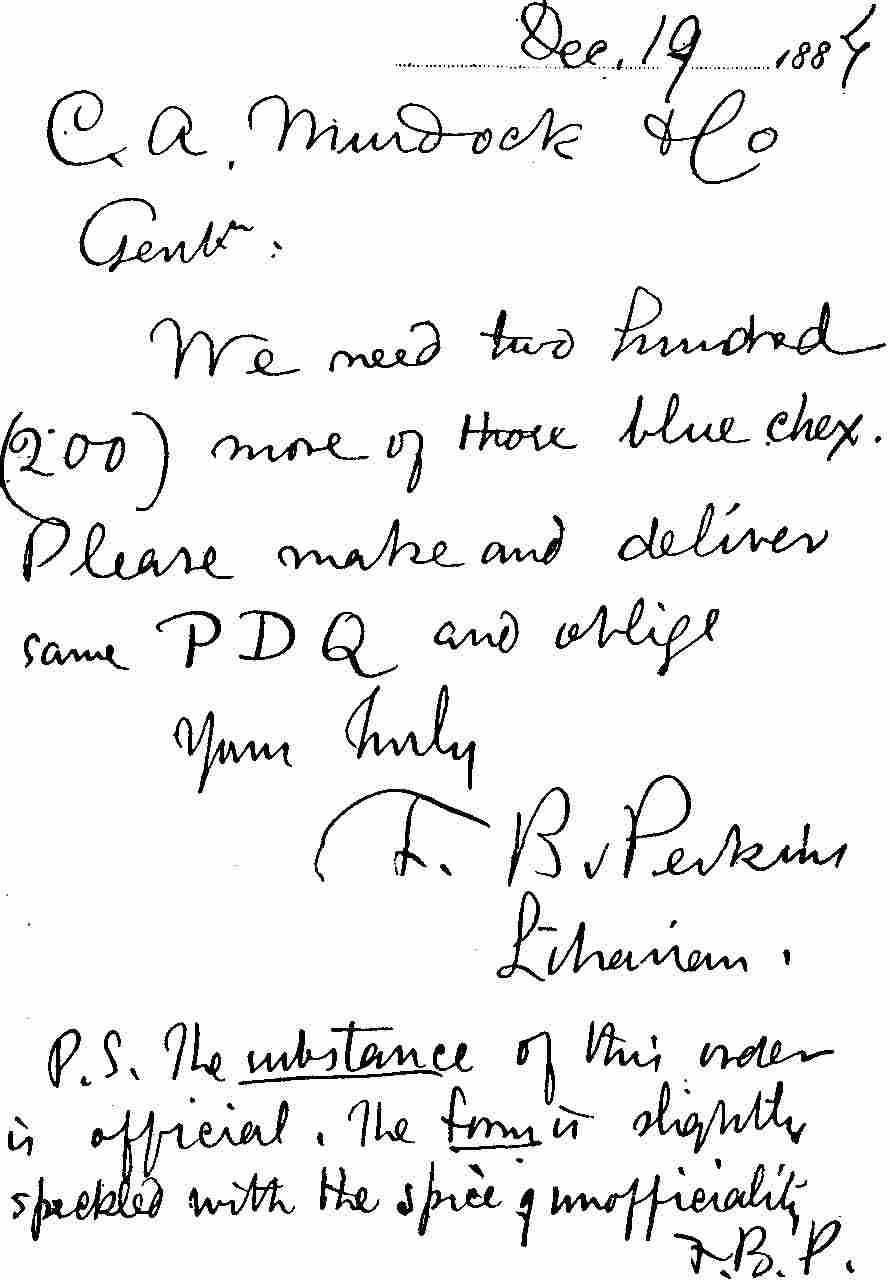 Dec. 19 1884
C. A. Murdock & Co
Gentⁿ:
We need two hundred
(200) more of those blue chex.
Please make and deliver
same P D Q and oblige
Yours truly
F. B. Perkins
Librarian.
P.S. The substance of this order
is official. The form is slightly
speckled with the spice of unofficiality
F.B.P.